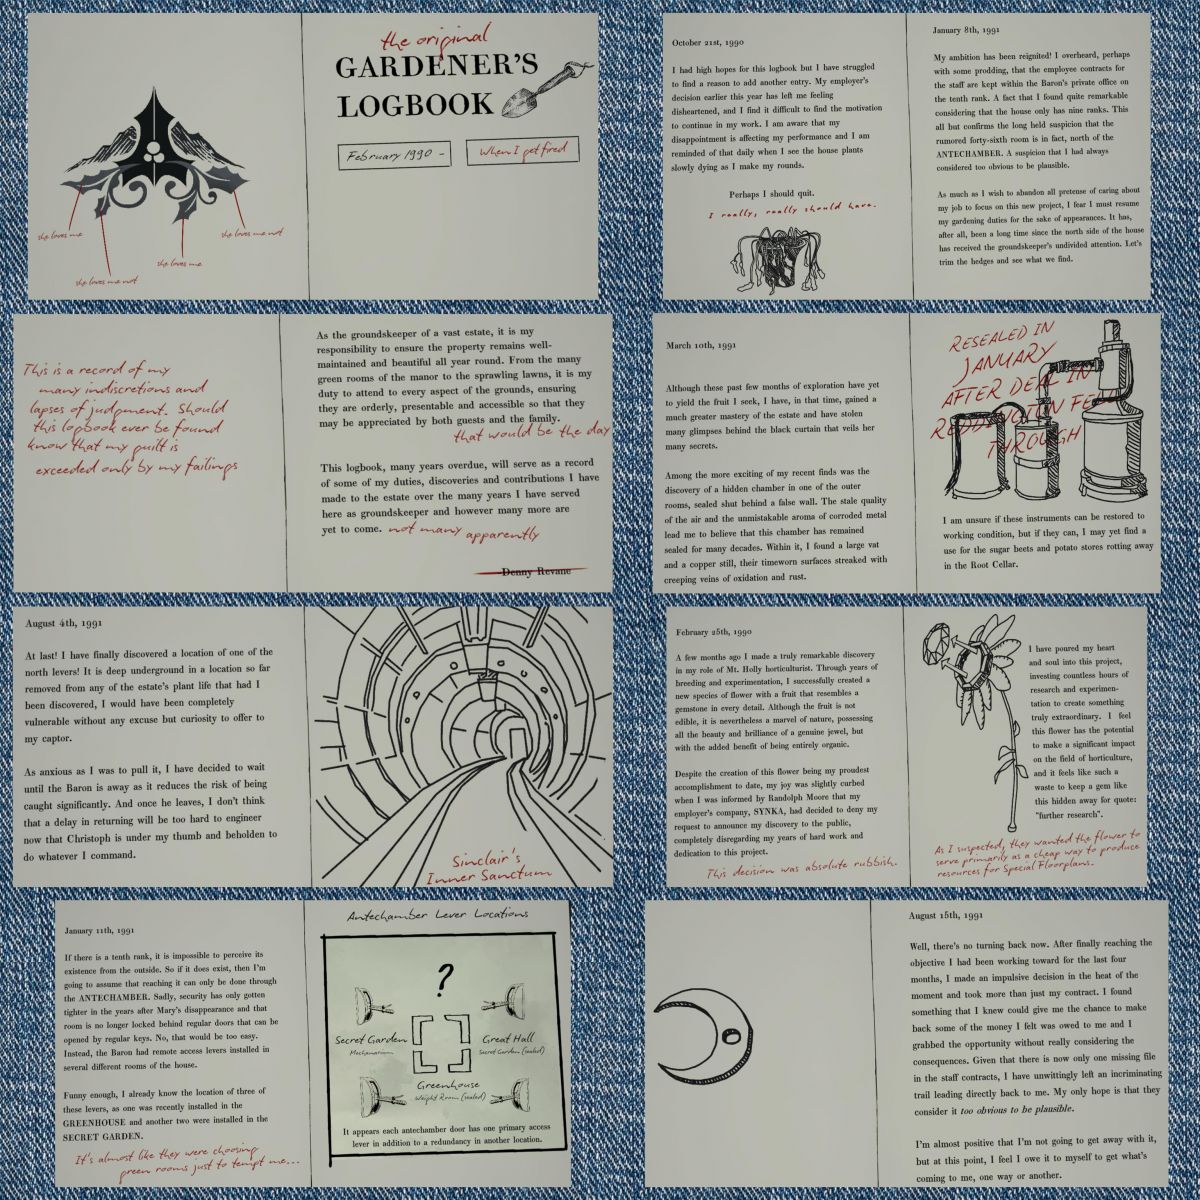 she loves me
she loves me not
she loves me
she loves me not
the original
GARDENER'S
LOGBOOK
February 1990 -
When I get fired
October 21st, 1990
I had high hopes for this logbook but I have struggled
to find a reason to add another entry. My employer's
decision earlier this year has left me feeling
disheartened, and I find it difficult to find the motivation
to continue in my work. I am aware that my
disappointment is affecting my performance and I am
reminded of that daily when I see the house plants
slowly dying as I make my rounds.
Perhaps I should quit.
I really, really should have.
January 8th, 1991
My ambition has been reignited! I overheard, perhaps
with some prodding, that the employee contracts for
the staff are kept within the Baron's private office on
the tenth rank. A fact that I found quite remarkable
considering that the house only has nine ranks. This
all but confirms the long held suspicion that the
rumored forty-sixth room is in fact, north of the
ANTECHAMBER. A suspicion that I had always
considered too obvious to be plausible.
As much as I wish to abandon all pretense of caring about
my job to focus on this new project, I fear I must resume
my gardening duties for the sake of appearances. It has,
after all, been a long time since the north side of the house
has received the groundskeeper's undivided attention. Let's
trim the hedges and see what we find.
This is a record of my
many indiscretions and
lapses of judgment. Should
this logbook ever be found
know that my guilt is
exceeded only by my failings
As the groundskeeper of a vast estate, it is my
responsibility to ensure the property remains well-
maintained and beautiful all year round. From the many
green rooms of the manor to the sprawling lawns, it is my
duty to attend to every aspect of the grounds, ensuring
they are orderly, presentable and accessible so that they
may be appreciated by both guests and the family.
that would be the day
This logbook, many years overdue, will serve as a record
of some of my duties, discoveries and contributions I have
made to the estate over the many years I have served
here as groundskeeper and however many more are
yet to come. not many apparently
Denny Revane
March 10th, 1991
Although these past few months of exploration have yet
to yield the fruit I seek, I have, in that time, gained a
much greater mastery of the estate and have stolen
many glimpses behind the black curtain that veils her
many secrets.
Among the more exciting of my recent finds was the
discovery of a hidden chamber in one of the outer
rooms, sealed shut behind a false wall. The stale quality
of the air and the unmistakable aroma of corroded metal
lead me to believe that this chamber has remained
sealed for many decades. Within it, I found a large vat
and a copper still, their timeworn surfaces streaked with
creeping veins of oxidation and rust.
RESEALED IN
JANUARY
AFTER DEAL IN
REDDINGTON FELL
THROUGH
I am unsure if these instruments can be restored to
working condition, but if they can, I may yet find a
use for the sugar beets and potato stores rotting away
in the Root Cellar.
August 4th, 1991
At last! I have finally discovered a location of one of the
north levers! It is deep underground in a location so far
removed from any of the estate's plant life that had I
been discovered, I would have been completely
vulnerable without any excuse but curiosity to offer to
my captor.
As anxious as I was to pull it, I have decided to wait
until the Baron is away as it reduces the risk of being
caught significantly. And once he leaves, I don't think
that a delay in returning will be too hard to engineer
now that Christoph is under my thumb and beholden to
do whatever I command.
Sinclair's
Inner Sanctum
February 25th, 1990
A few months ago I made a truly remarkable discovery
in my role of Mt. Holly horticulturist. Through years of
breeding and experimentation, I successfully created a
new species of flower with a fruit that resembles a
gemstone in every detail. Although the fruit is not
edible, it is nevertheless a marvel of nature, possessing
all the beauty and brilliance of a genuine jewel, but
with the added benefit of being entirely organic.
Despite the creation of this flower being my proudest
accomplishment to date, my joy was slightly curbed
when I was informed by Randolph Moore that my
employer's company, SYNKA, had decided to deny my
request to announce my discovery to the public,
completely disregarding my years of hard work and
dedication to this project.
This decision was absolute rubbish.
I have poured my heart
and soul into this project,
investing countless hours of
research and experimen-
tation to create something
truly extraordinary. I feel
this flower has the potential
to make a significant impact
on the field of horticulture,
and it feels like such a
waste to keep a gem like
this hidden away for quote:
"further research".
As I suspected, they wanted the flower to
serve primarily as a cheap way to produce
resources for Special Floorplans.
January 11th, 1991
If there is a tenth rank, it is impossible to perceive its
existence from the outside. So if it does exist, then I'm
going to assume that reaching it can only be done through
the ANTECHAMBER. Sadly, security has only gotten
tighter in the years after Mary's disappearance and that
room is no longer locked behind regular doors that can be
opened by regular keys. No, that would be too easy.
Instead, the Baron had remote access levers installed in
several different rooms of the house.
Funny enough, I already know the location of three of
these levers, as one was recently installed in the
GREENHOUSE and another two were installed in the
SECRET GARDEN.
It's almost like they were choosing
green rooms just to tempt me...
Antechamber Lever Locations
?
Secret Garden
Mechanarium
Great Hall
Secret Garden (sealed)
Greenhouse
Weight Room (sealed)
It appears each antechamber door has one primary access
lever in addition to a redundancy in another location.
August 15th, 1991
Well, there's no turning back now. After finally reaching the
objective I had been working toward for the last four
months, I made an impulsive decision in the heat of the
moment and took more than just my contract. I found
something that I knew could give me the chance to make
back some of the money I felt was owed to me and I
grabbed the opportunity without really considering the
consequences. Given that there is now only one missing file
in the staff contracts, I have unwittingly left an incriminating
trail leading directly back to me. My only hope is that they
consider it too obvious to be plausible.
I'm almost positive that I'm not going to get away with it,
but at this point, I feel I owe it to myself to get what's
coming to me, one way or another.